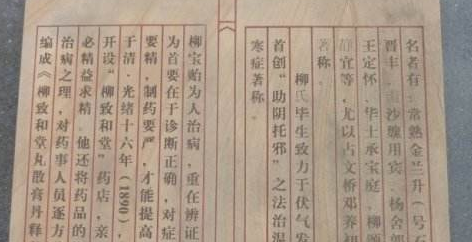 名者有：常熟金兰升（号
晋丰、沙缠用宾、杨舍郭
王定怀、华士承宝庭、柳颐
静宜等，尤以古文桥邓养初
著称。
柳氏毕生致力于伏气发
首创“助阴托邪”之法治温
寒症著称。
柳宝贻为人治病，重在辨证
为首要在于诊断正确，对症
要精，制药要严，才能提高
于清·光绪十六年（1890），
开设“柳致和堂”药店，亲
必精益求精。他还将药品的
治病之理，对药事人员逐方
编成《柳致和堂丸散膏丹释